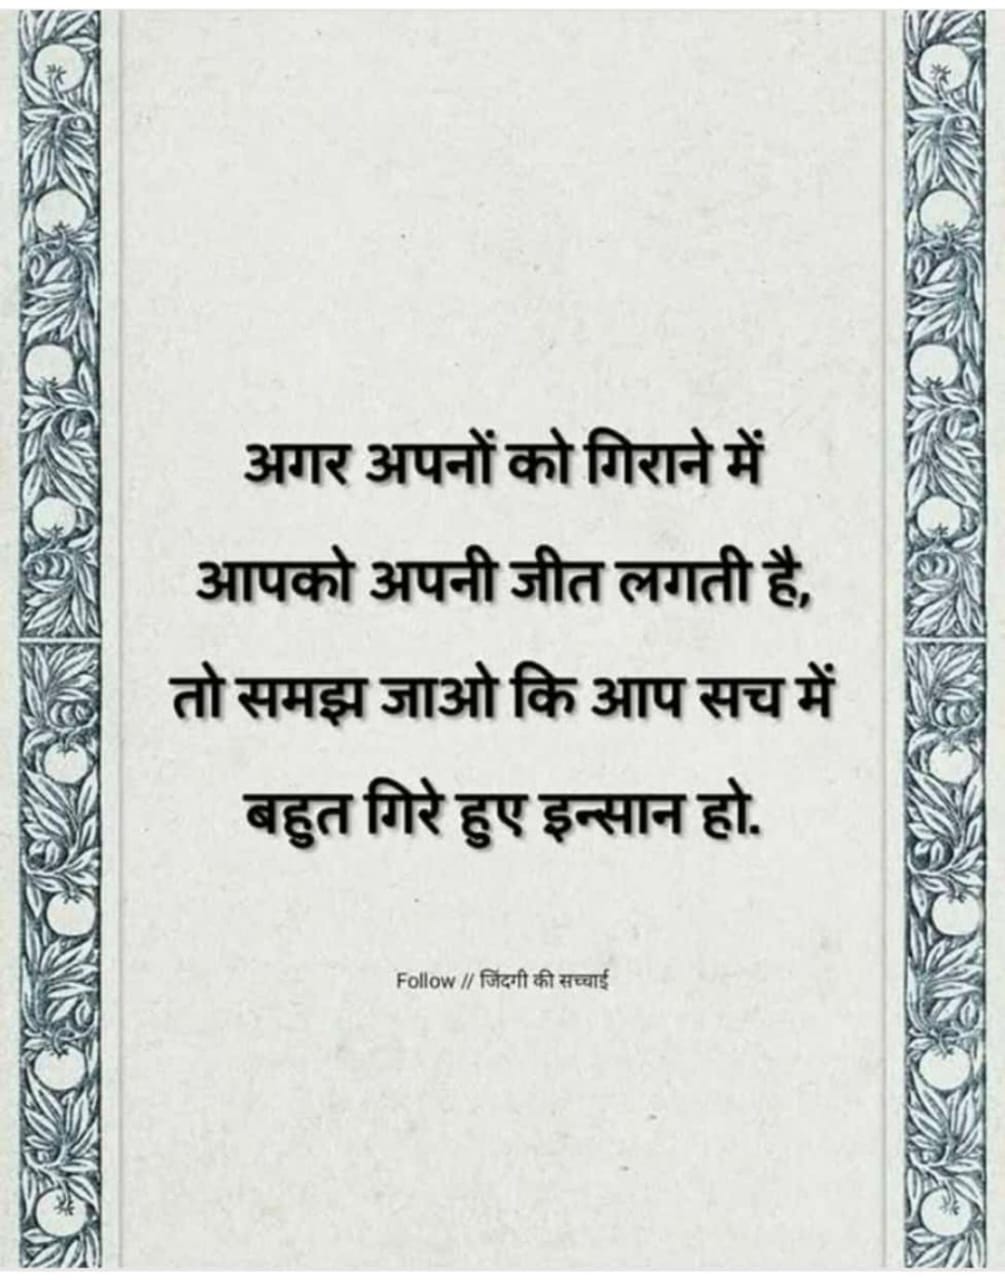 अगर अपनों को गिराने में
आपको अपनी जीत लगती है,
तो समझ जाओ कि आप सच में
बहुत गिरे हुए इन्सान हो.
Follow // जिंदगी की सच्चाई